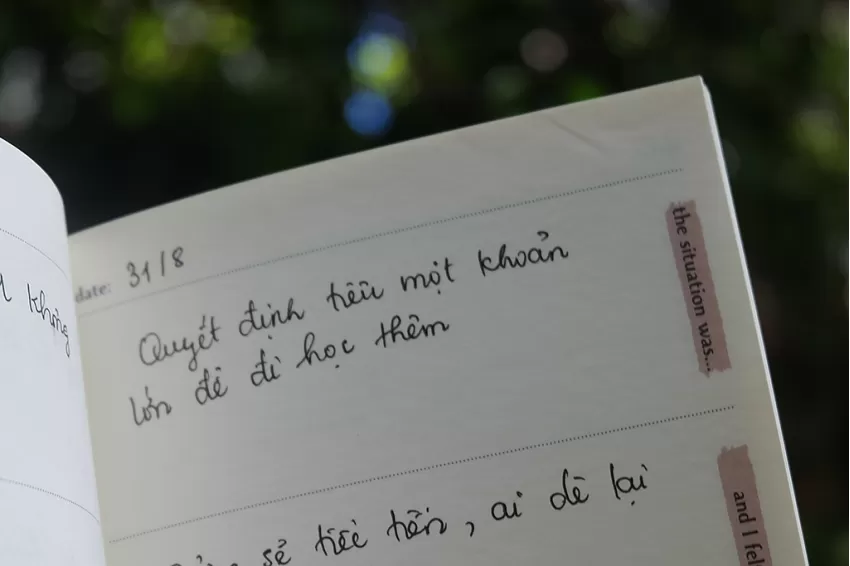 không
date: 31/8
the situation was...
Quyết định tiêu một khoản
lớn để đi học thêm
and I fel
sẻ tiếc tiền, ai dè lại